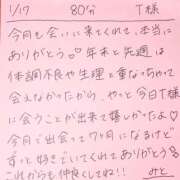 1/17 80分 T様
今月も会いに来てくれて、本当に
ありがとう♡年末と先週は
体調不良や生理と重なっちゃって
会えなかったから、やっと今日T様
に会うことが出来て嬉しかったよ♡
今月で出会って7ヶ月になるけど
ずっと好きでいてくれてありがとう
これからも仲良くしてね!!
みと